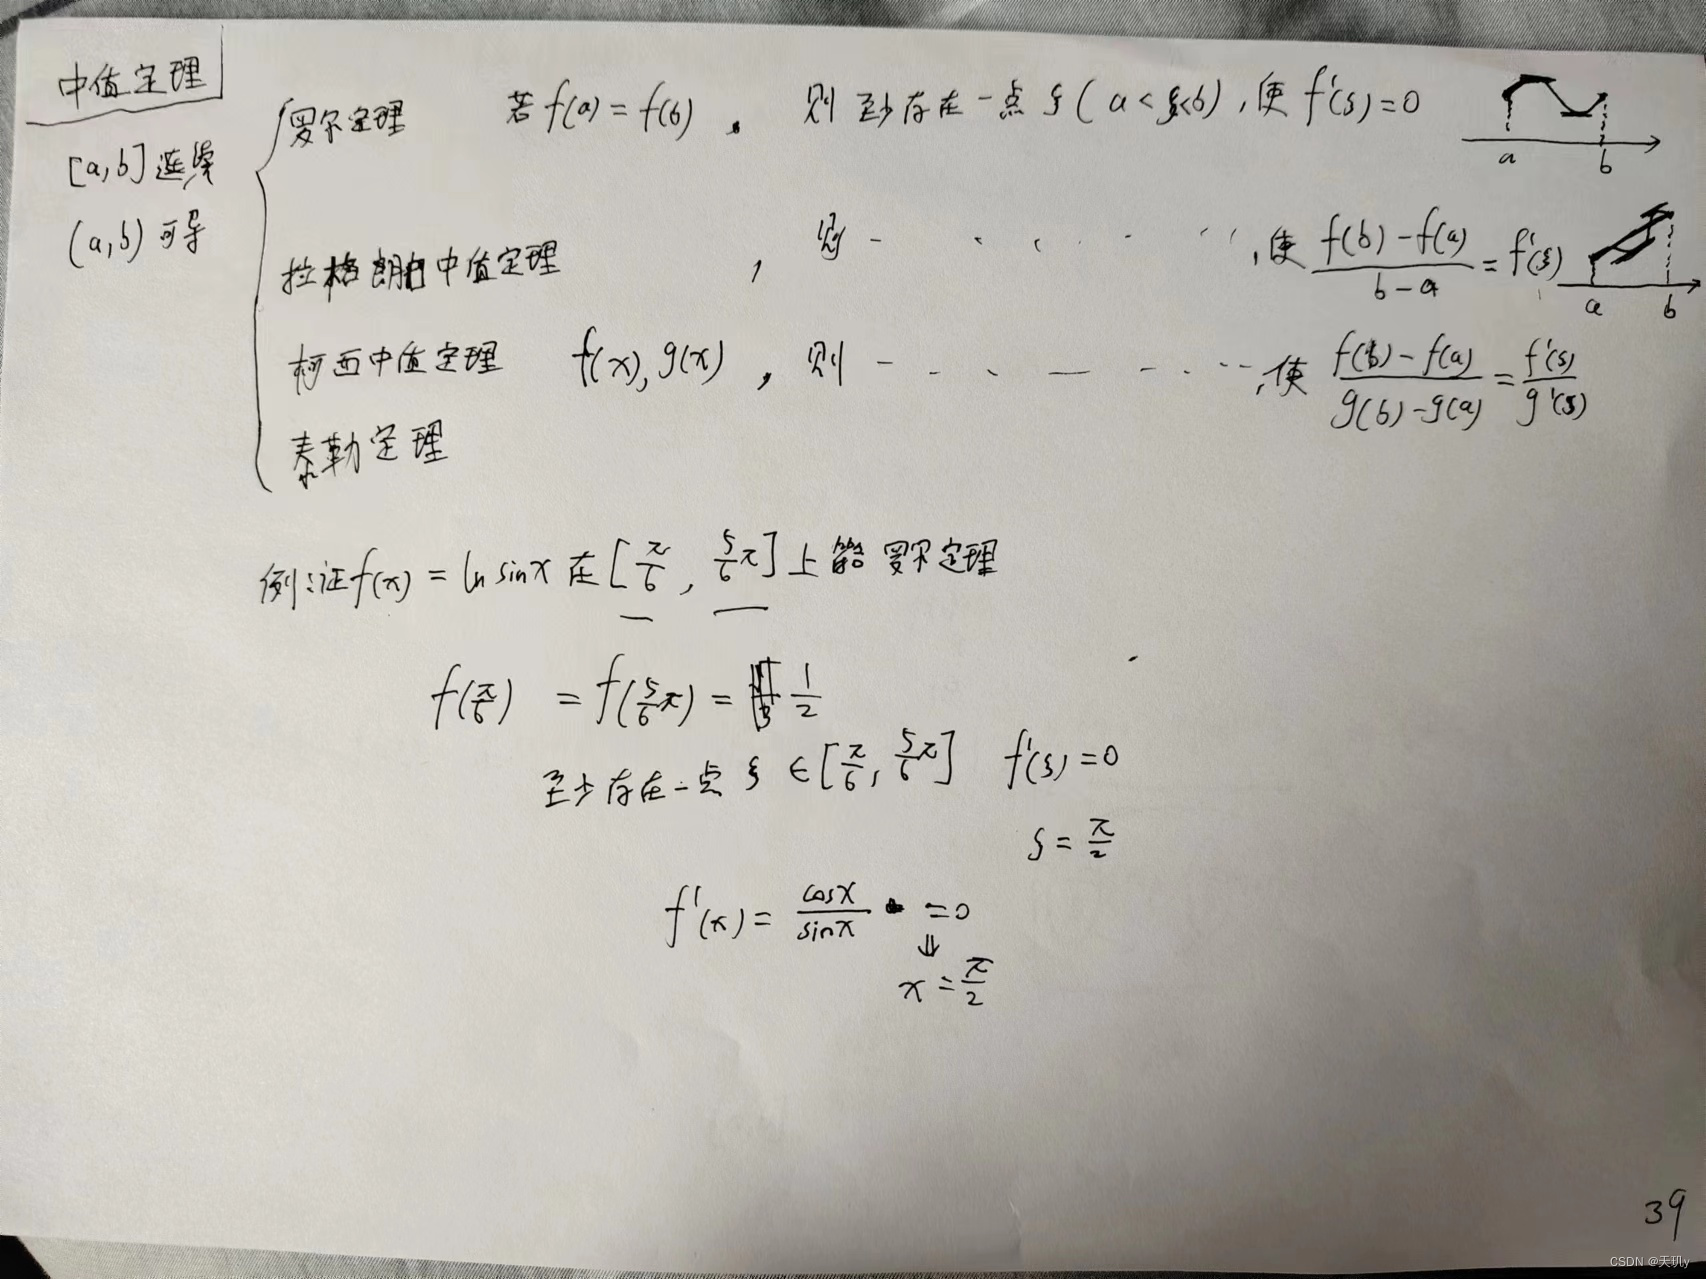 中值定理
[a,b]连续
(a,b)可导
罗尔定理 若f(a)=f(b), 则至少存在一点ξ(a<ξ<b),使f'(ξ)=0
a b
拉格朗日中值定理 , 则- ,使 \frac{f(b)-f(a)}{b-a}=f'(ξ)
a b
柯西中值定理 f(x),g(x), 则- ,使 \frac{f(b)-f(a)}{g(b)-g(a)}=\frac{f'(ξ)}{g'(ξ)}
泰勒定理
例:证f(x)=ln sinx在[\frac{π}{6},\frac{5}{6}π]上 罗尔定理
f(\frac{π}{6}) =f(\frac{5}{6}π)= \frac{1}{2}
至少存在一点ξ∈[\frac{π}{6},\frac{5}{6}π] f'(ξ)=0
ξ=\frac{π}{2}
f'(x)=\frac{cosx}{sinx} =0
⇓
x=\frac{π}{2}
39
CSDN @天玑y